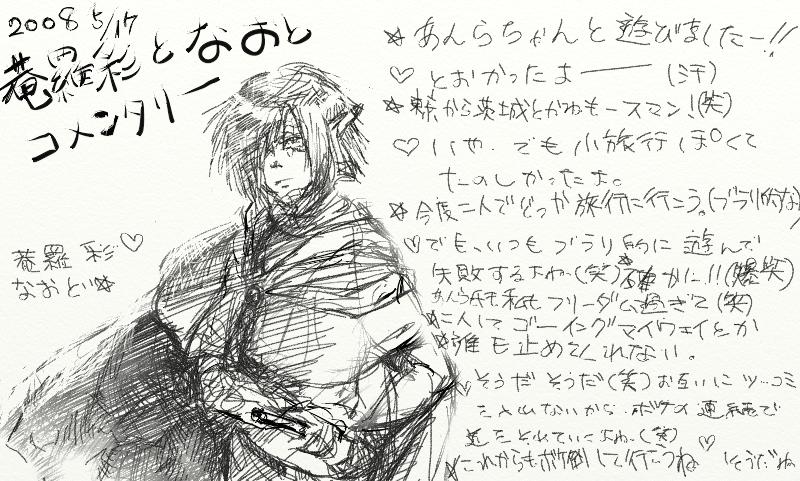 2008 5/17
菴羅彩となおと
コメンタリー
菴羅 彩♡
なおと☆
☆あんらちゃんと遊びましたー!!
♡とおかったよ―― (汗)
☆東京から茨城とかねもースマン!(笑)
♡いや、でも小旅行ぽくて
たのしかったよ。
☆今度二人でどっか旅行に行こう。(ブラリ的な)
♡でも、いつもブラリ的に遊んで
失敗するよね(笑)☆確かに!!(爆笑)
あんら氏も私もフリーダム過ぎて(笑)
二人してゴーイングマイウェイとか
☆誰も止めてくれない。
♡そうだそうだ(笑)お互いにツッコミ
たりしないから、ボケの連続で
(笑)♡
☆これからもボケ倒して行こうね いそうだね